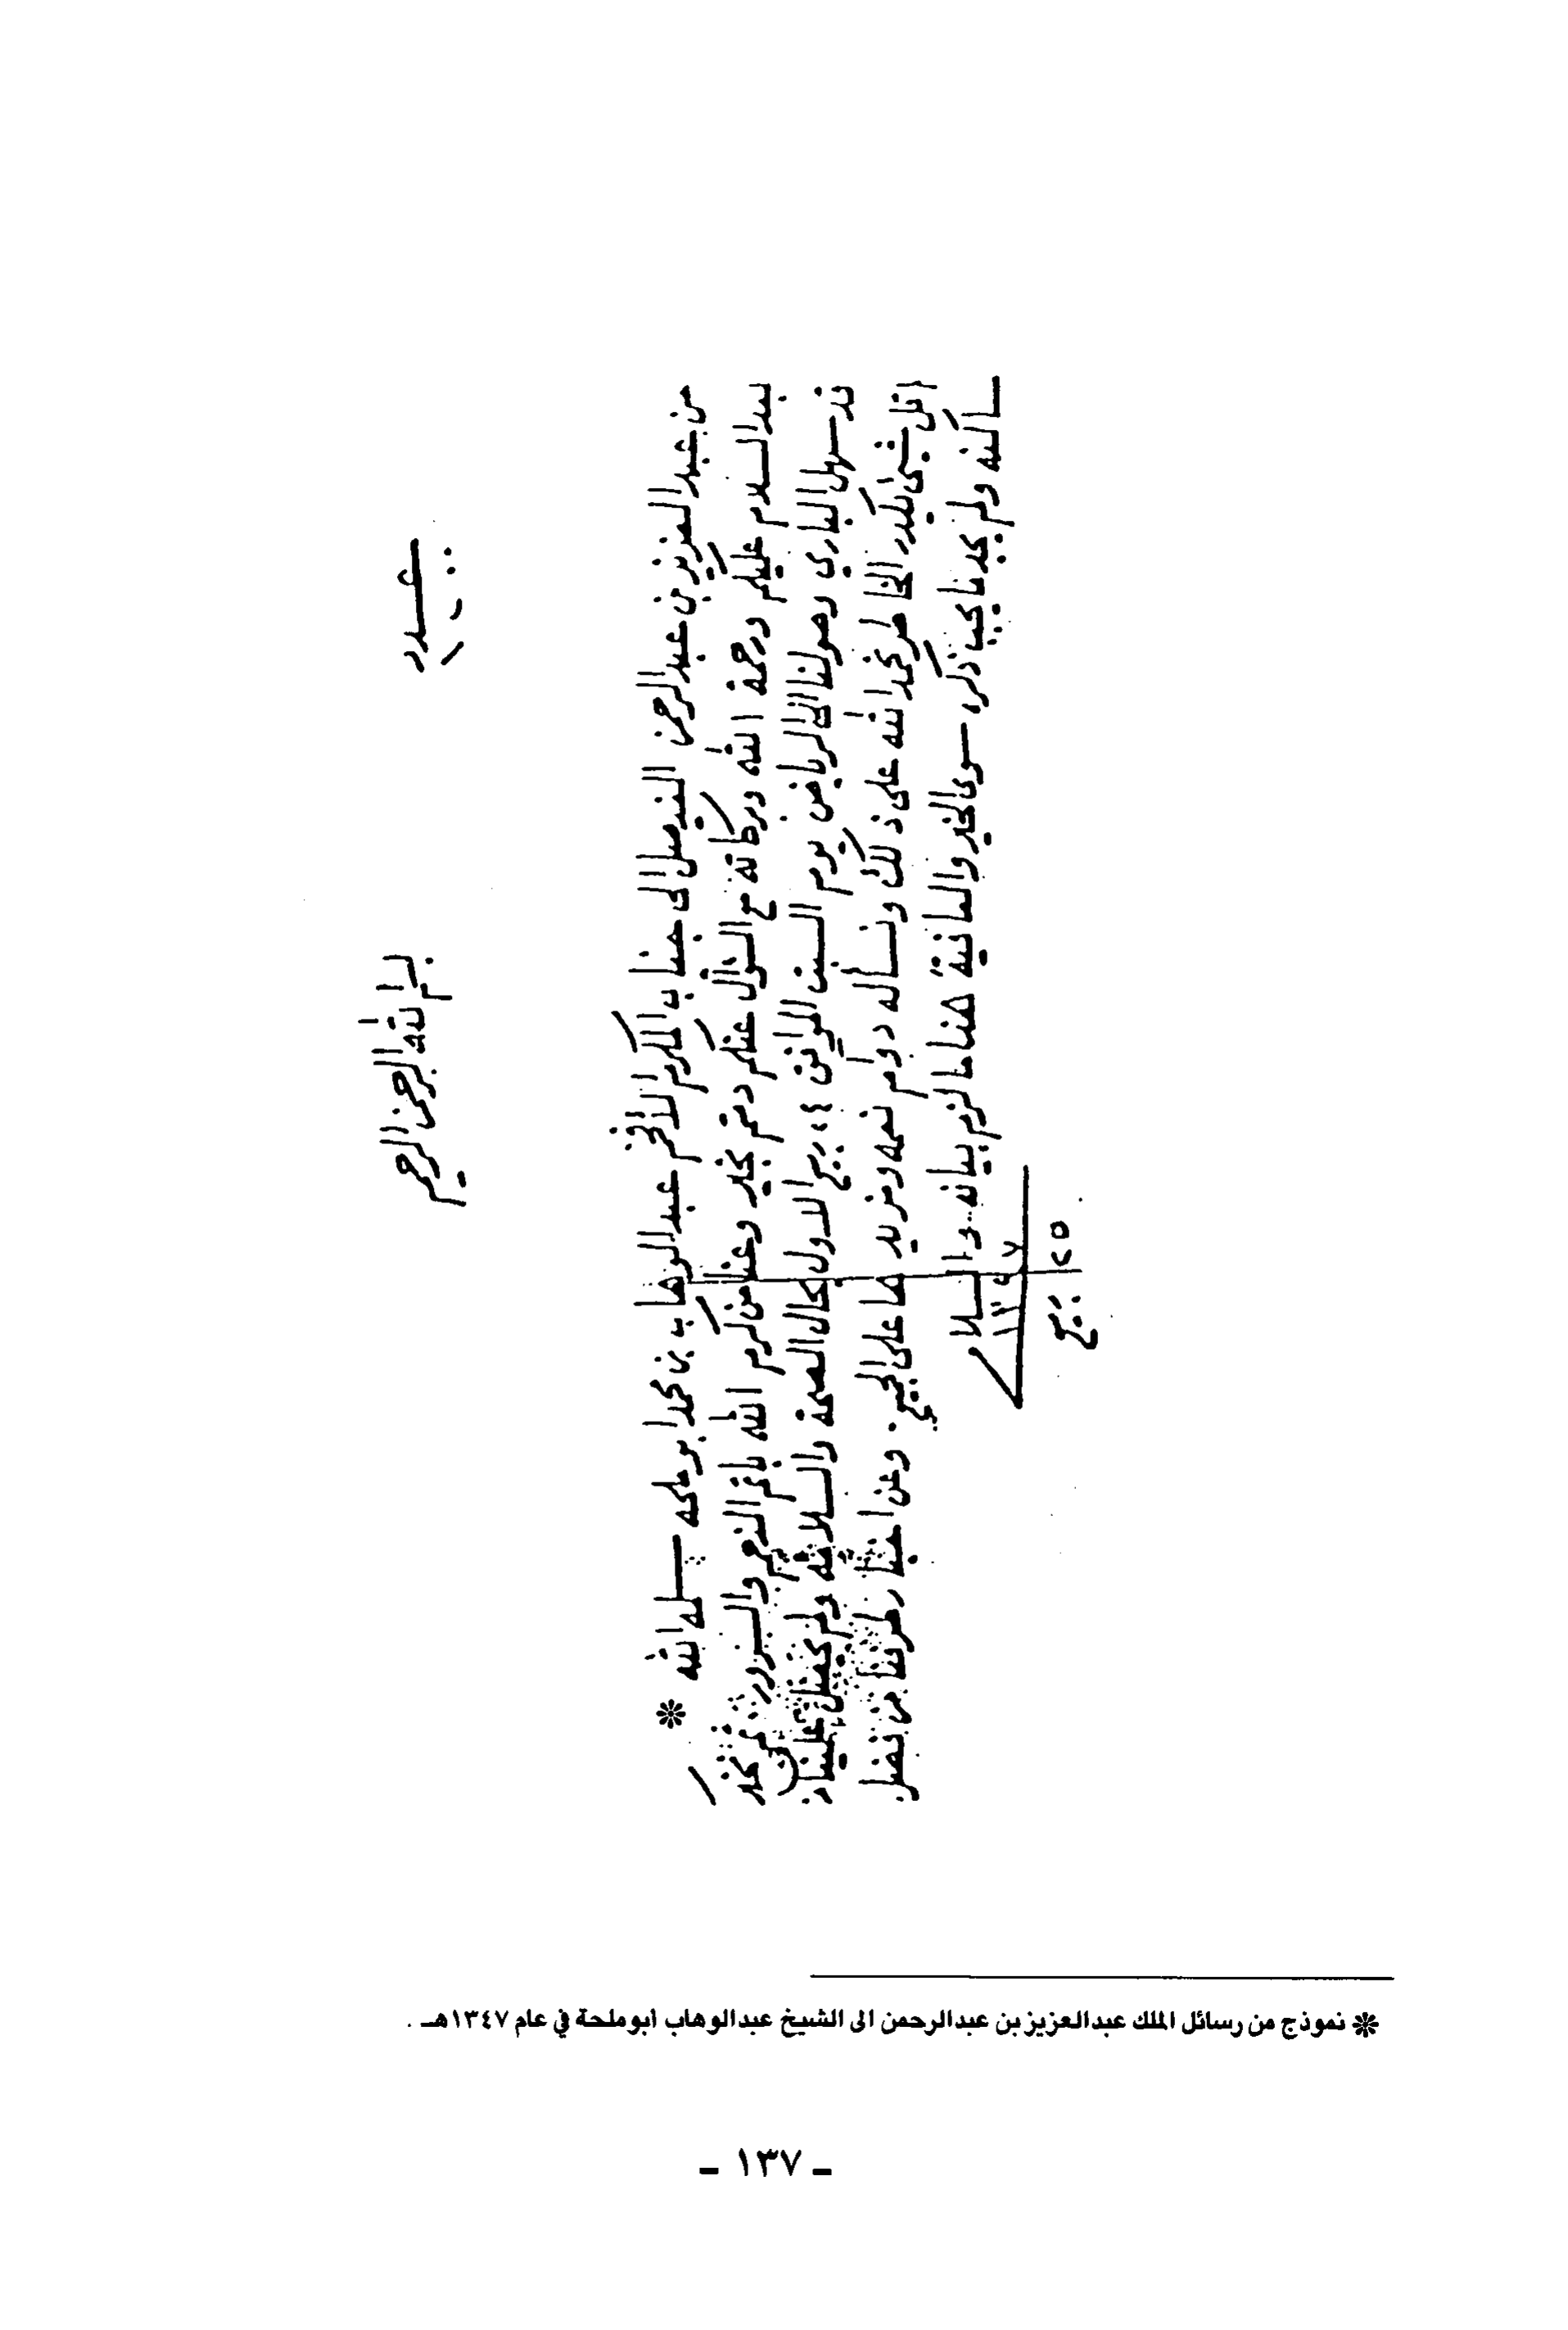 بسم الله الرحمن الرحيم
عدد
من عبدالعزيز بن عبدالرحمن الفيصل الى جناب المكرم الافخم عبدالوهاب بن محمد ابو ملحه سلمه الله *
بعد السلام عليكم ورحمة الله وبركاته مع السؤال عنكم دمتم بخير وعنا من كرم الله باتم النعم والسرور نخبركم
قد سهل الباري وصولنا الى الرياض يوم السبت الموافق ربيع الاول بحال الصحة والسلامه ولم علينا
اقل شيئ يكدر الخاطر نحمد الله على ذلك ونساله دوام نعمه ومزيدها على الجميع . وعن اخبار طرفنا من فضل
ساكنه ولم يجد ما يجب ذكره سوى الخير والعافية هذا ما لزم بيانه والسلام
١٣٤٧
٢٥ ربيع
* نموذج من رسائل الملك عبدالعزيز بن عبدالرحمن الى الشيخ عبدالوهاب ابوملحة في عام ١٣٤٧هـ .
- ١٣٧ -